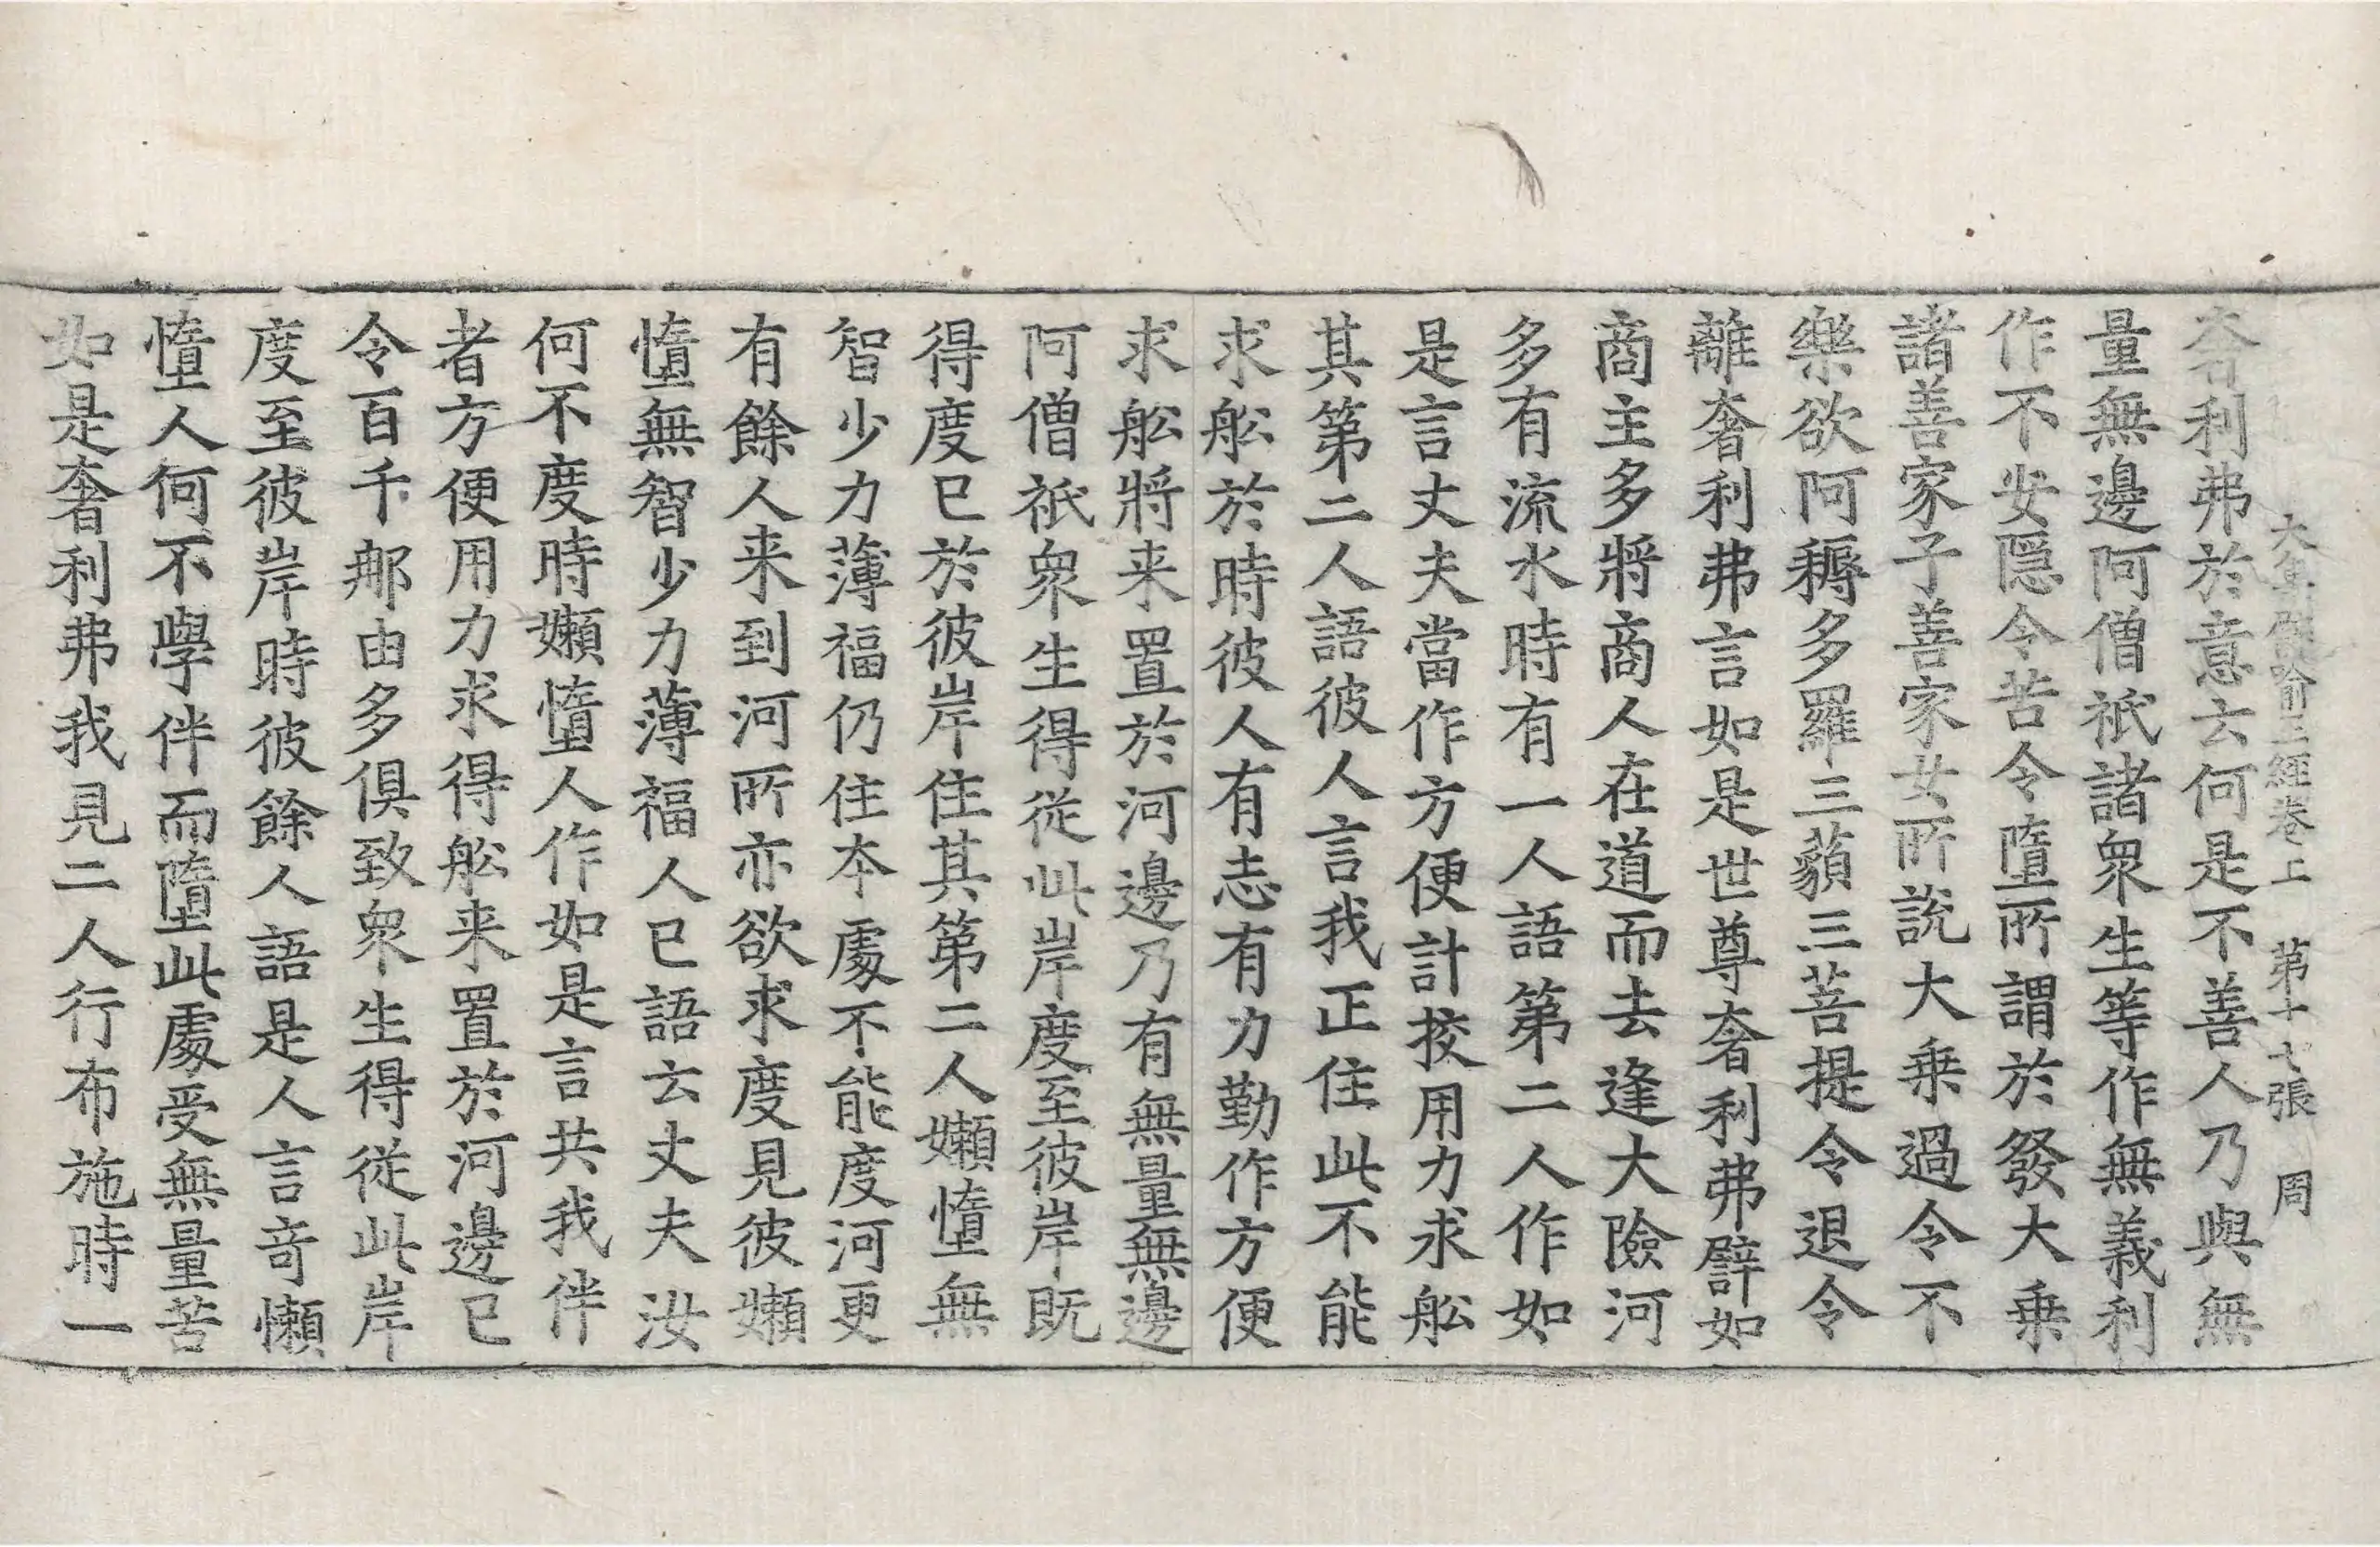 大集譬喻王經卷上　第十七張　周
奢利弗於意云何是不善人乃與無
量無邊阿僧祇諸衆生等作無義利
作不安隱令苦令墮所謂於發大乗
諸善家子善家女所說大乗過令不
樂欲阿耨多羅三藐三菩提令退令
離奢利弗言如是世尊奢利弗譬如
商主多將商人在道而去逢大險河
多有流水時有一人語第二人作如
是言丈夫當作方便計挍用力求舩
其第二人語彼人言我正住此不能
求舩於時彼人有志有力勤作方便
求舩將来置於河邊乃有無量無邊
阿僧祇衆生得從此岸度至彼岸既
得度已於彼岸住其第二人嬾惰無
智少力薄福仍住本處不能度河更
有餘人来到河所亦欲求度見彼嬾
惰無智少力薄福人已語云丈夫汝
何不度時嬾惰人作如是言共我伴
者方便用力求得舩来置於河邊已
令百千那由多俱致衆生得從此岸
度至彼岸時彼餘人語是人言奇懶
惰人何不學伴而墮此處受無量苦
如是奢利弗我見二人行布施時一